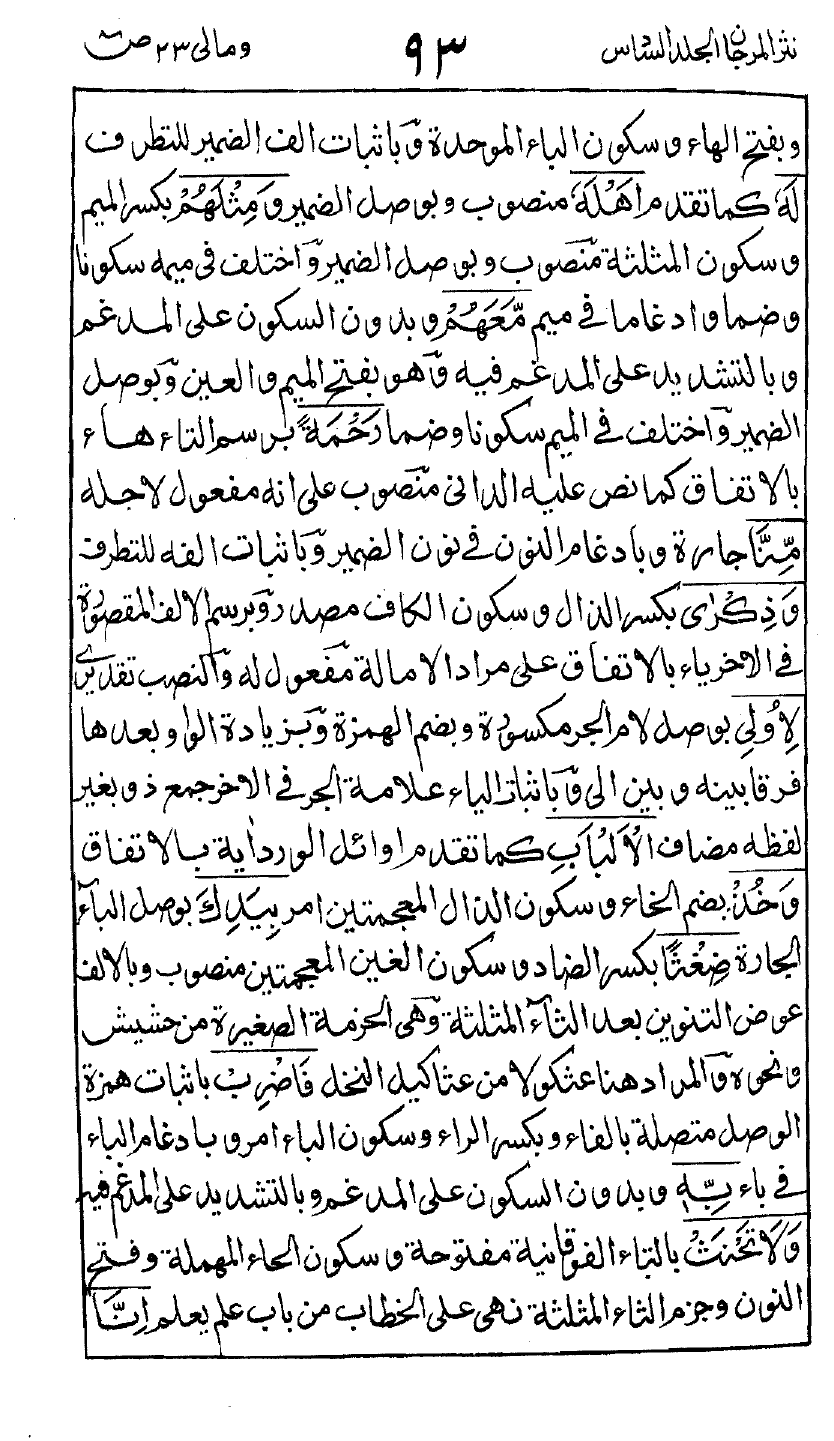 نثر المرجان الجلد السادس ٩٣ ومالى ٢٣ ص
وبفتح الهاء وسكون الباء الموحدة وباثبات الف الضمير للتطرف
لَهُ كما تقدم اَهْلَهُ منصوب وبوصل الضمير وَمِثْلَهُمْ بكسر الميم
وسكون المثلثة منصوب وبوصل الضمير واختلف فى ميمه سكونا
وضما وادغاما فى ميم مَّعَهُمْ وبدون السكون على المدغم
وبالتشديد على المدغم فيه وهو بفتح الميم والعين وبوصل
الضمير واختلف فى الميم سكونا وضما رَحْمَةً برسم التاء هاء
بالاتفاق كما نص عليه الدانى منصوب على انه مفعول لاجله
مِّنَّا جارة وبادغام النون فى نون الضمير وباثبات الفه للتطرف
وَذِكْرٰى بكسر الذال وسكون الكاف مصدر وبرسم الالف المقصورة
فى الاخر ياء بالاتفاق على مراد الامالة مفعول له والنصب تقديرى
لِاُولِى بوصل لام الجر مكسورة وبضم الهمزة وبزيادة الواو بعدها
فرقا بينه وبين الى وباثبات الياء علامة الجر فى الاخر جمع ذو بغير
لفظه مضاف الْاَلْبَابِ كما تقدم اوائل الورد اٰية بالاتفاق
وَخُذْ بضم الخاء وسكون الذال المعجمتين امر بِيَدِكَ بوصل الباء
الجارة ضِغْثًا بكسر الضاد وسكون الغين المعجمتين منصوب وبالالف
عوض التنوين بعد الثاء المثلثة وهى الحزمة الصغيرة من حشيش
ونحوه والمراد هنا عثكولا من عثاكيل النخل فَاضْرِبْ باثبات همزة
الوصل متصلة بالفاء وبكسر الراء وسكون الباء امر وبادغام الباء
فى باء بِّهٖ وبدون السكون على المدغم وبالتشديد على المدغم فيه
وَلَا تَحْنَثْ بالتاء الفوقانية مفتوحة وسكون الحاء المهملة وفتح
النون وجزم الثاء المثلثة نهى على الخطاب من باب علم يعلم اِنَّا